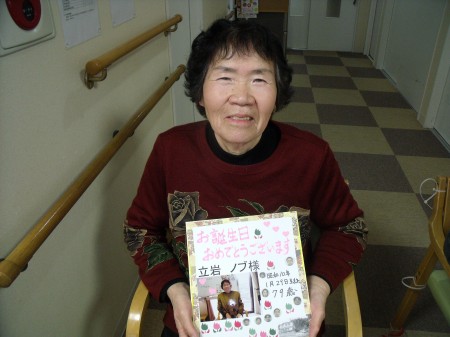 お誕生日
おめでとうございます
立岩 ノブ様
昭和10年
1月29日生
79歳